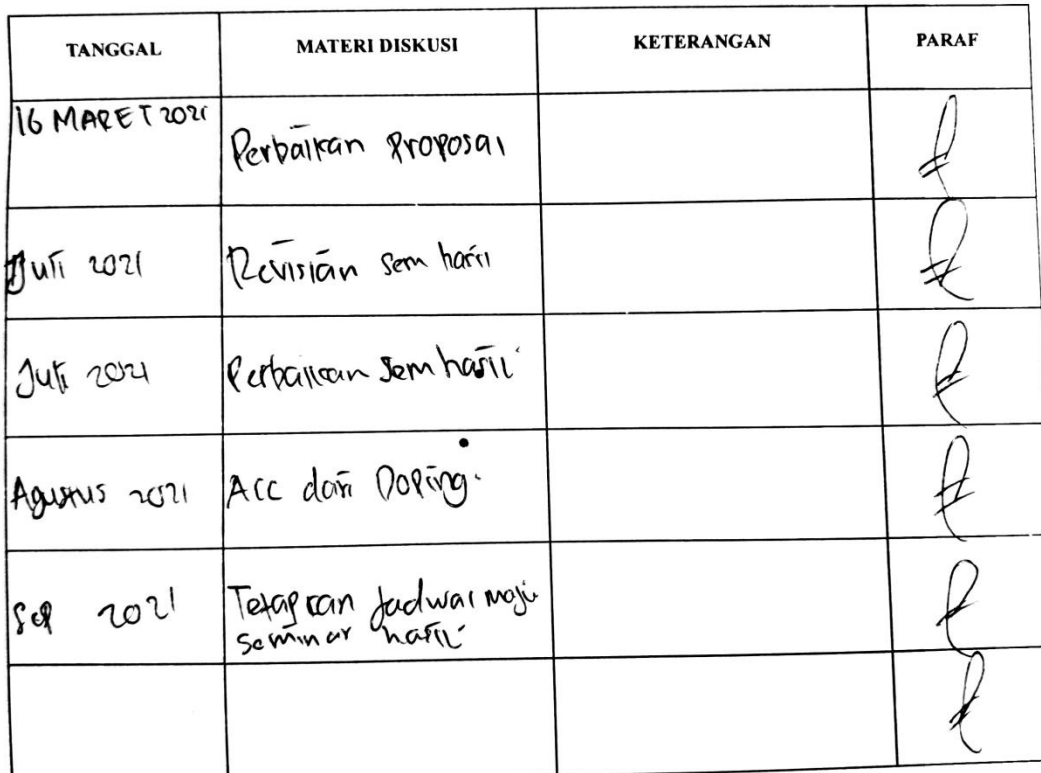 TANGGAL MATERI DISKUSI KETERANGAN PARAF
16 MARET 2021 Perbaikan Proposal
Juli 2021 Revisian sem hasil
Juli 2021 Perbaikan sem hasil
Agustus 2021 Acc dari Doping.
Sep 2021 Tetapkan Jadwal maju
seminar hasil